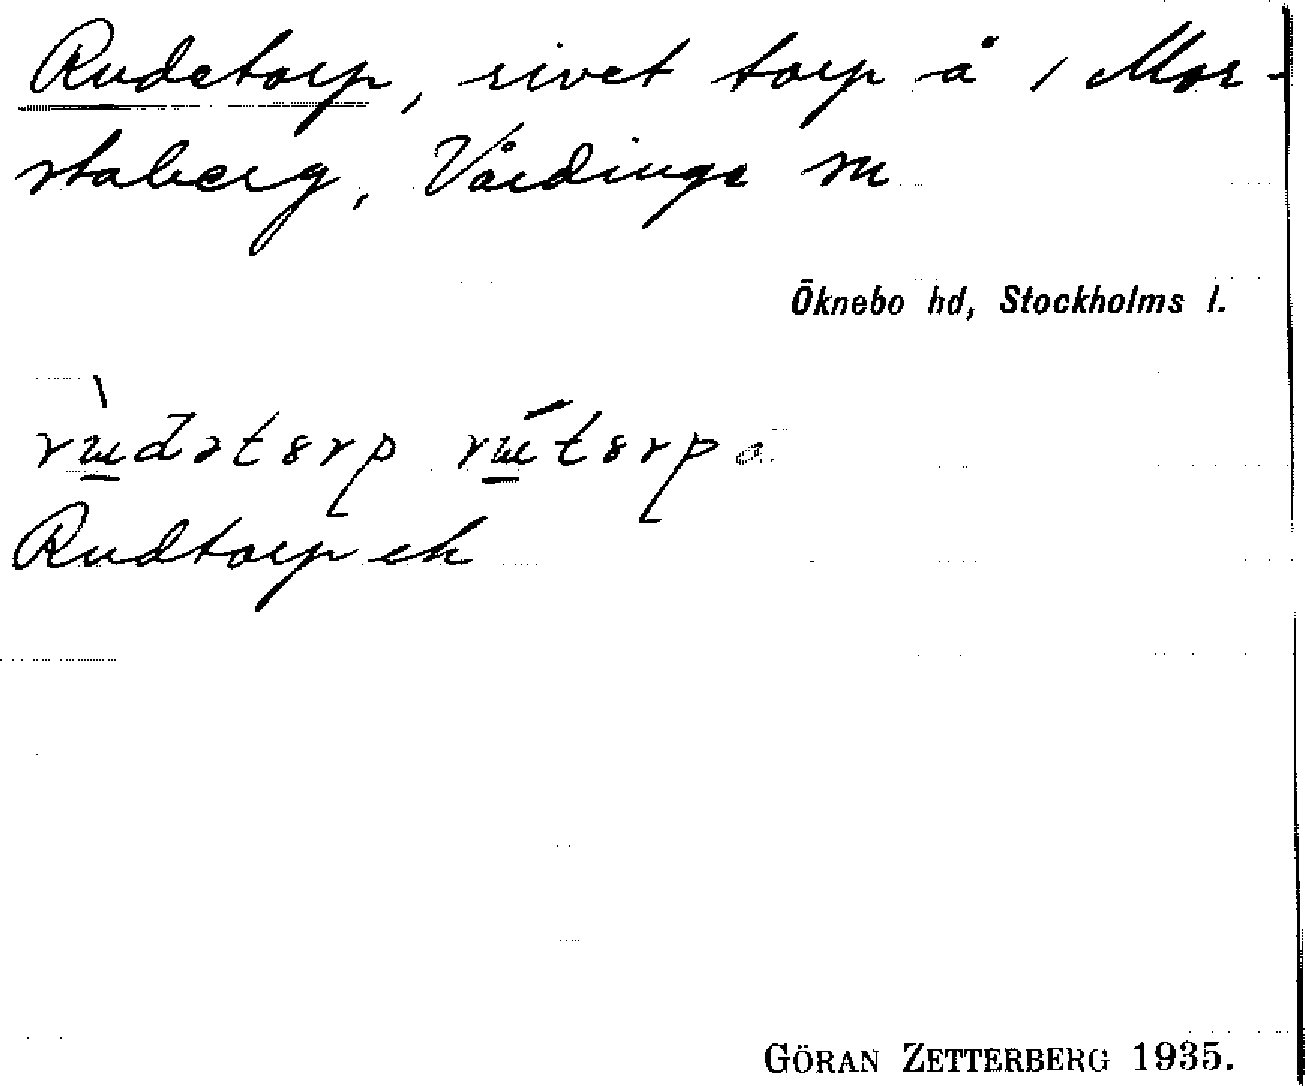 Rudetorp, rivet torp å 1 Mor-
staberg, Vårdinge sn
Öknebo hd, Stockholms l.
Rudtorp ek
GÖRAN ZETTERBERG 1935.